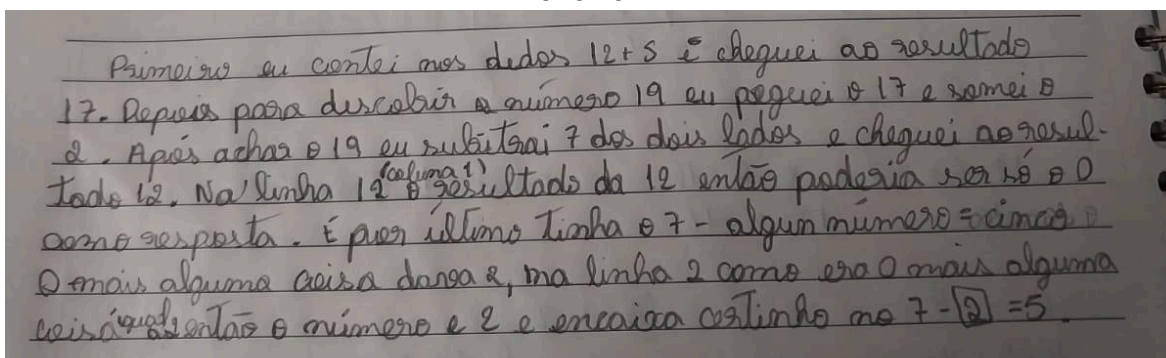 Primeiro eu contei nos dedos 12+5 e cheguei ao resultado
17. Depois para descobrir o número 19 eu peguei o 17 e somei o
2. Após achar o 19 eu subitrai 7 dos dois lados e cheguei ao resul-
tado 12. Na linha 12 (coluna 1) o resultado da 12 então poderia ser só o 0
como resposta. E por último tinha o 7 - algun número = cinco
0 mais alguma coisa dava 2, na linha 2 como era 0 mais alguma
coisa então o número e 2 e encaixa certinho no 7 - 2 = 5.